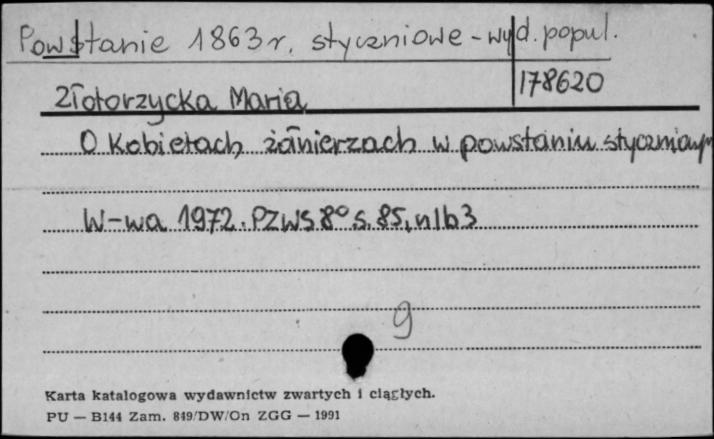 Powstanie 1863 r. styczniowe - wyd. popul.
178620
Złotorzycka Maria
O kobietach żołnierzach w powstaniu styczniowym
W-wa 1972. PZWS 8° s. 85, nlb 3
9
Karta katalogowa wydawnictw zwartych i ciągłych.
PU — B144 Zam. 849/DW/On ZGG — 1991